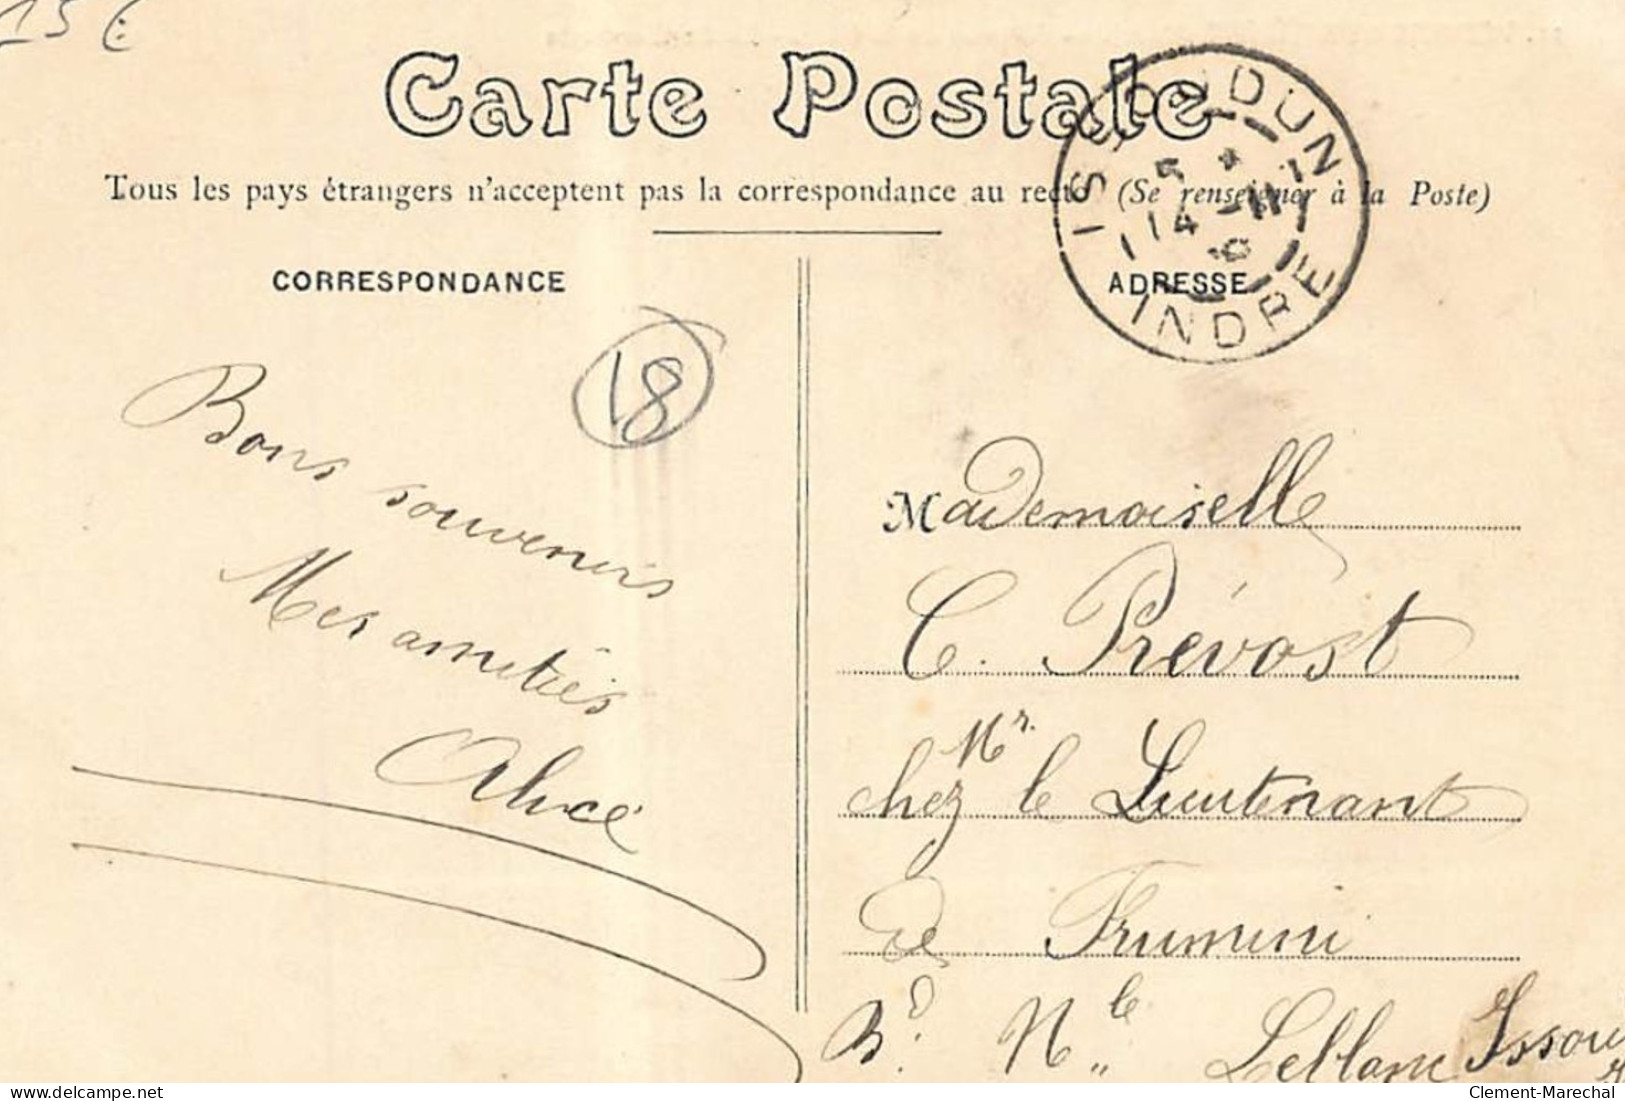 15 €
Carte Postale
Tous les pays étrangers n'acceptent pas la correspondance au recto (Se renseigner à la Poste)
ISSOUDUN
14 -11
INDRE
CORRESPONDANCE
ADRESSE
18
Bons souvenirs
Mes amitiés
Alice
Mademoiselle
C. Prévost
chez Mr. le Lieutenant
de Frumini
Bd. Nle Leblanc Issou
Clement-Marechal